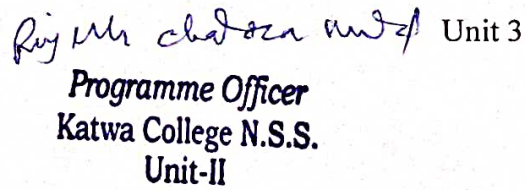 Unit 3
Programme Officer
Katwa College N.S.S.
Unit-II